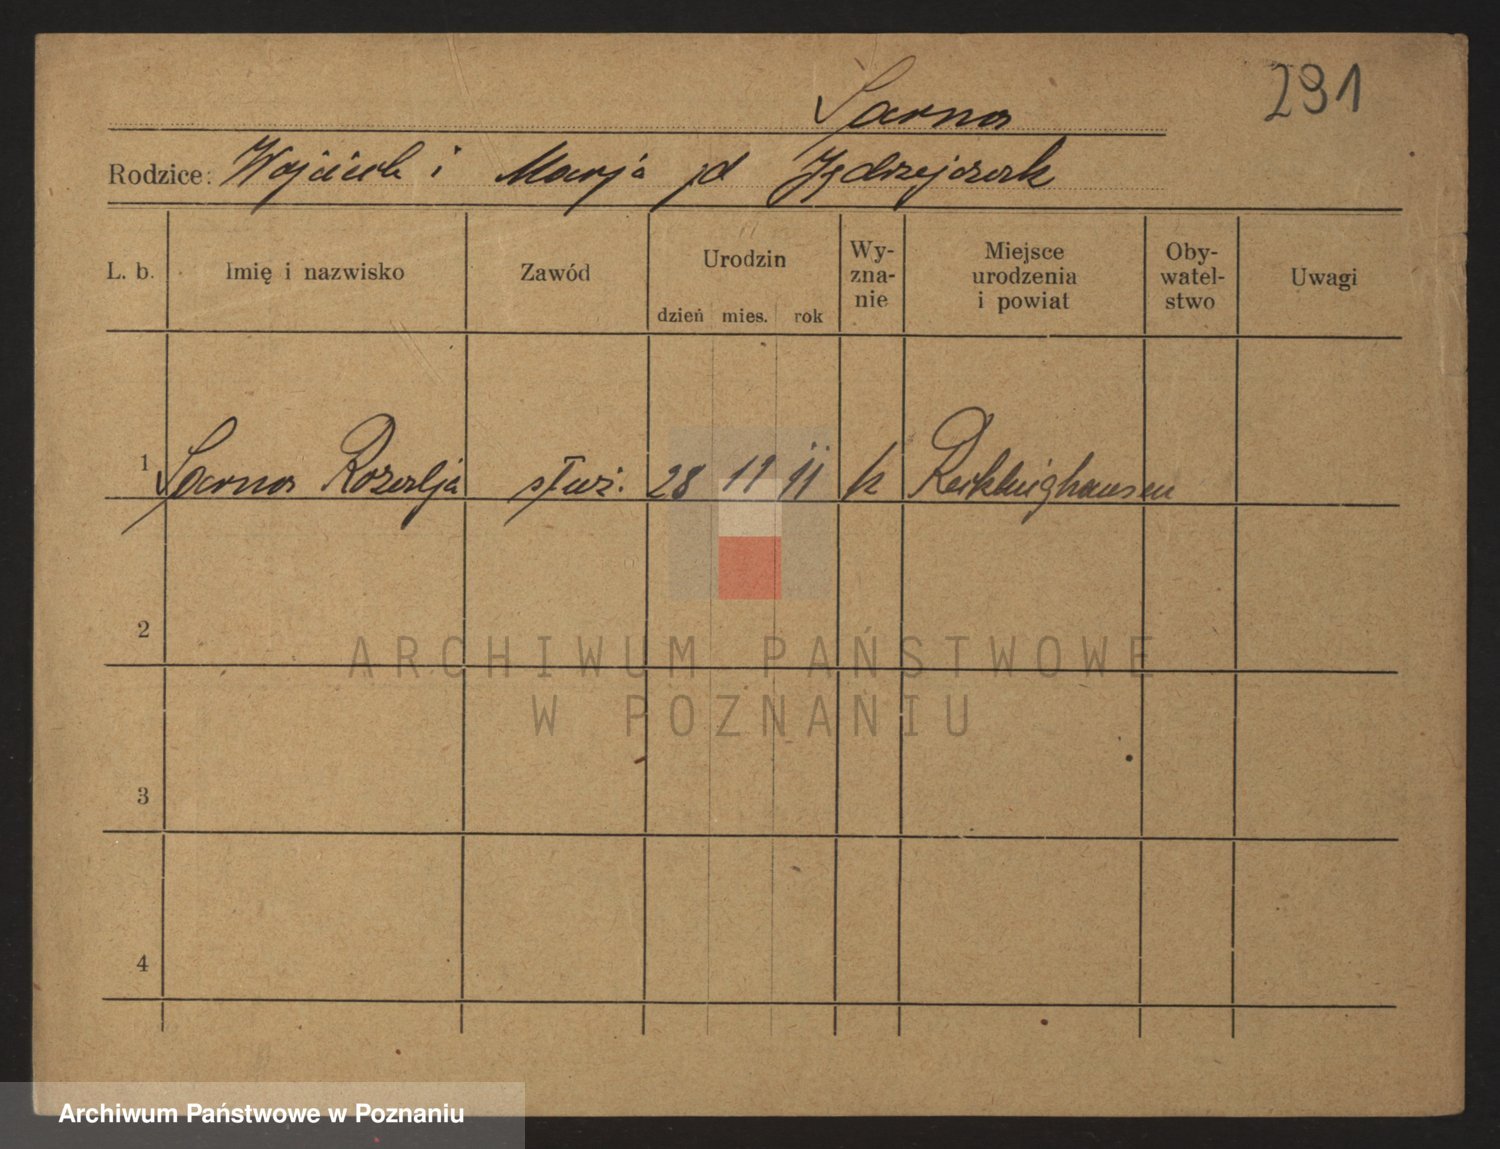 291
Sarna
Rodzice: Wojciech i Marja zd Jędrzejczak
L. b. Imię i nazwisko Zawód Urodzin Wy-zna-nie Miejsce urodzenia i powiat Oby-watel-stwo Uwagi
dzień mies. rok
1 Sarna Rozalja służ. 28 11 11 k Recklinghausen
2
ARCHIWUM PAŃSTWOWE
W POZNANIU
3
4
Archiwum Państwowe w Poznaniu